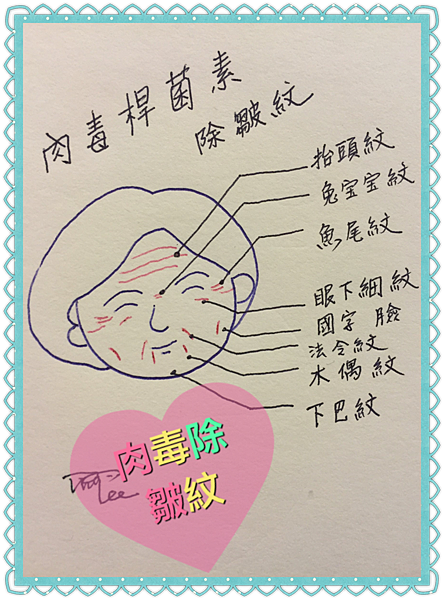 肉毒桿菌素
除皺紋
抬頭紋
兔宝宝紋
魚尾紋
眼下細紋
國字 臉
法令紋
木偶紋
下巴紋
肉毒除
皺紋
Lee